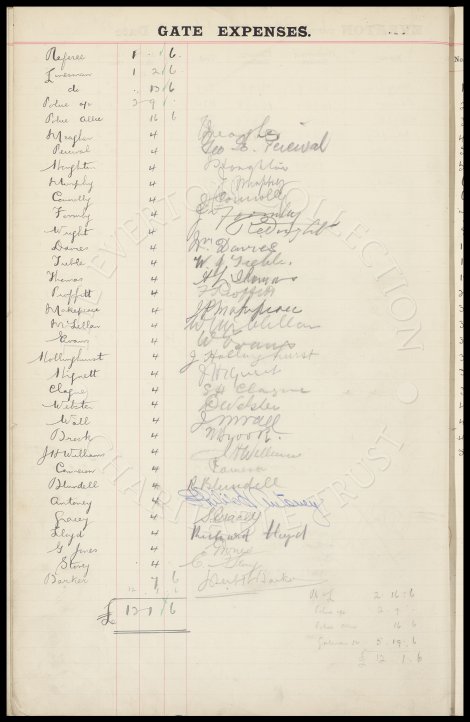 GATE EXPENSES.
Referee 1 . 1 6
Linesman 1 2 6
do 13 6
Police 2 9 .
Police 16 6
Meagher 4 Meagher
Percival 4 Geo E. Percival
Houghton 4 Houghton
Murphy 4 Murphy
Connolly 4 J Connolly
Formby 4 Formby
Wright 4 R E Wright
Davies 4 Wm Davies
Treble 4 W J Treble
Thomas 4 Thomas
Proffitt 4 Proffitt
Makepeace 4 Makepeace
McLellan 4 W McLellan
Evans 4 W Evans
Hollinghurst 4 J Hollinghurst
Hignett 4 J Hignett
Clague 4 Clague
Webster 4 Webster
Wall 4 Wall
Brook 4 Brook
J H Williams 4 J H Williams
Cameron 4 Cameron
Blundell 4 R Blundell
Antoney 4 Antoney
Gracey 4 Gracey
Lloyd 4 Richard Lloyd
G Jones 4 G Jones
Storey 4 C. Storey
Barker 7 6 Barker
£ 12 1 6
2 16 6
Police 2 9 .
Police 16 6
Gatemen 5 19 6
£ 12 1 6
EVERTON COLLECTION
CHARITABLE TRUST